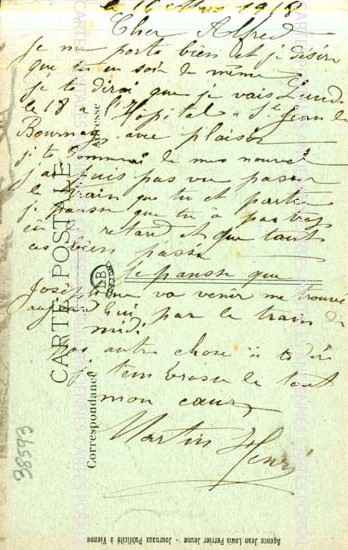 le 16 Mars 1918
Cher Alfred
je me porte bien et je désire
que tu en soit de même
je te dirai que je vais Lundi
le 18 a l'Hopital St Jean de
Bournay avec plaisir
je te donnerai de mes nouvel
j'ai puis pas vue passer
le train que tu et partie
je pausse que tu a pas trop
eu de retard et que tout
ces bien passé
Je pausse que
Joséphine va venir me trouvé
aujourd'hui par le train de
midi
pas autre chose a te dire
je tembrasse de tout
mon cœur
Martin Henri
CARTE POSTALE
Correspondance
Adresse
38593
Agence Jean Louis Perrier Jeune - Journaux Publicité à Vienne